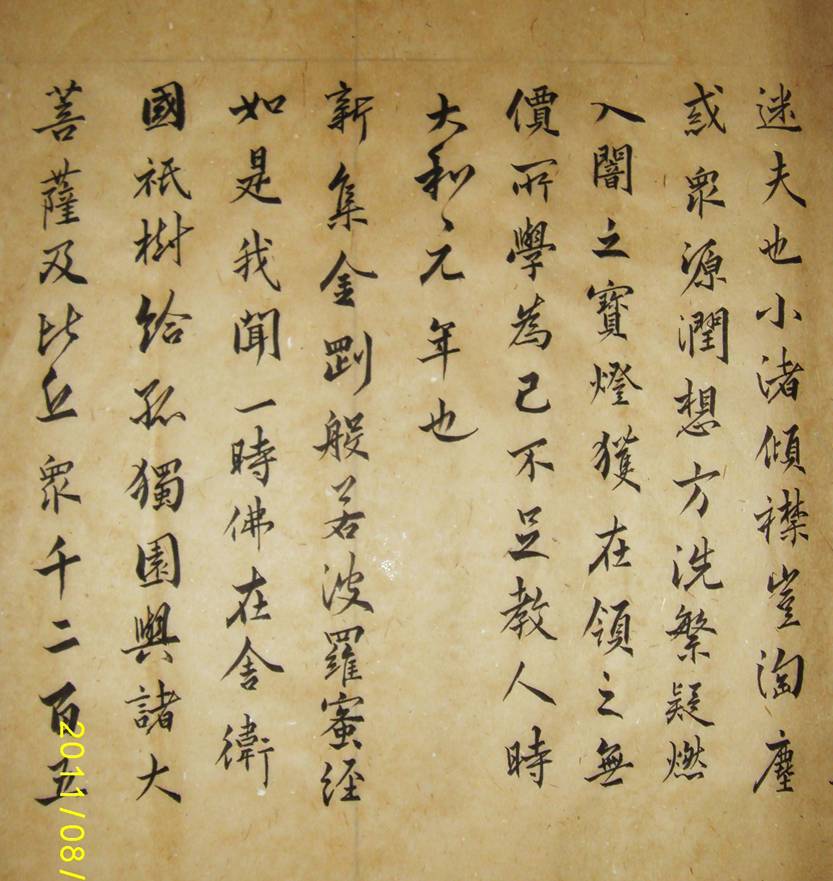 迷夫也小渚傾襟豈淘塵
惑眾源潤想方洗繁疑燃
入闇之寶燈獲在領之無
價所學為己不足教人時
大和、元年也
新集金剛般若波羅蜜經
如是我聞一時佛在舍衛
國祇樹給孤獨園與諸大
菩薩及比丘眾千二百五
2011/08/